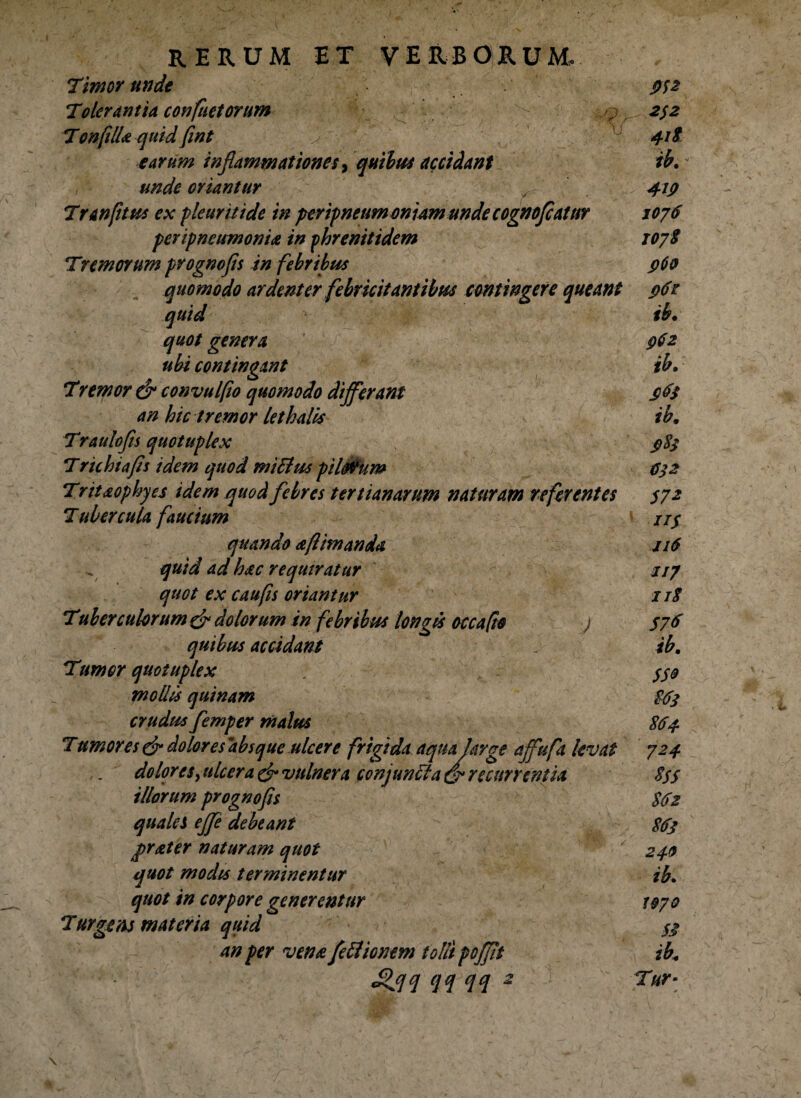 RERUM ET VERBORUM.
Timor unde 952
Tolerantia conſuetorum 252
Tonſillæ quid ſint 418
earum inflammationes, quibus accidant ib.
unde oriantur 419
Tranſitus ex pleuritide in peripneumoniam unde cognoſcatur 1076
peripneumoniæ in phrenitidem 1078
Tremorum prognoſis in febribus 960
quomodo ardenter febricitantibus contingere queant 961
quid ib.
quot genera 962
ubi contingant ib.
Tremor & convulſio quomodo differant 963
an hic tremor lethalis ib.
Trauloſis quotuplex 983
Trichiaſis idem quod mictus piloſum 632
Tritæophyes idem quod febres tertianarum naturam referentes 572
Tubercula faucium 115
quando æſtimanda 116
quid ad hæc requiratur 117
quot ex cauſis oriantur 118
Tuberculorum & dolorum in febribus longis occaſio ) 576
quibus accidant ib.
Tumor quotuplex 550
mollis quinam 863
crudus ſemper malus 864
Tumores & dolores absque ulcere frigida aqua large affuſa levat 724
dolores, ulcera & vulnera conjuncta & recurrentia 855
illorum prognoſis 862
quales eſſe debeant 863
præter naturam quot 240
quot modis terminentur ib.
quot in corpore generentur 1070
Turgens materia quid 53
an per venæ ſectionem tolli poſſit ib.
Qqq qq qq 2 Tur-